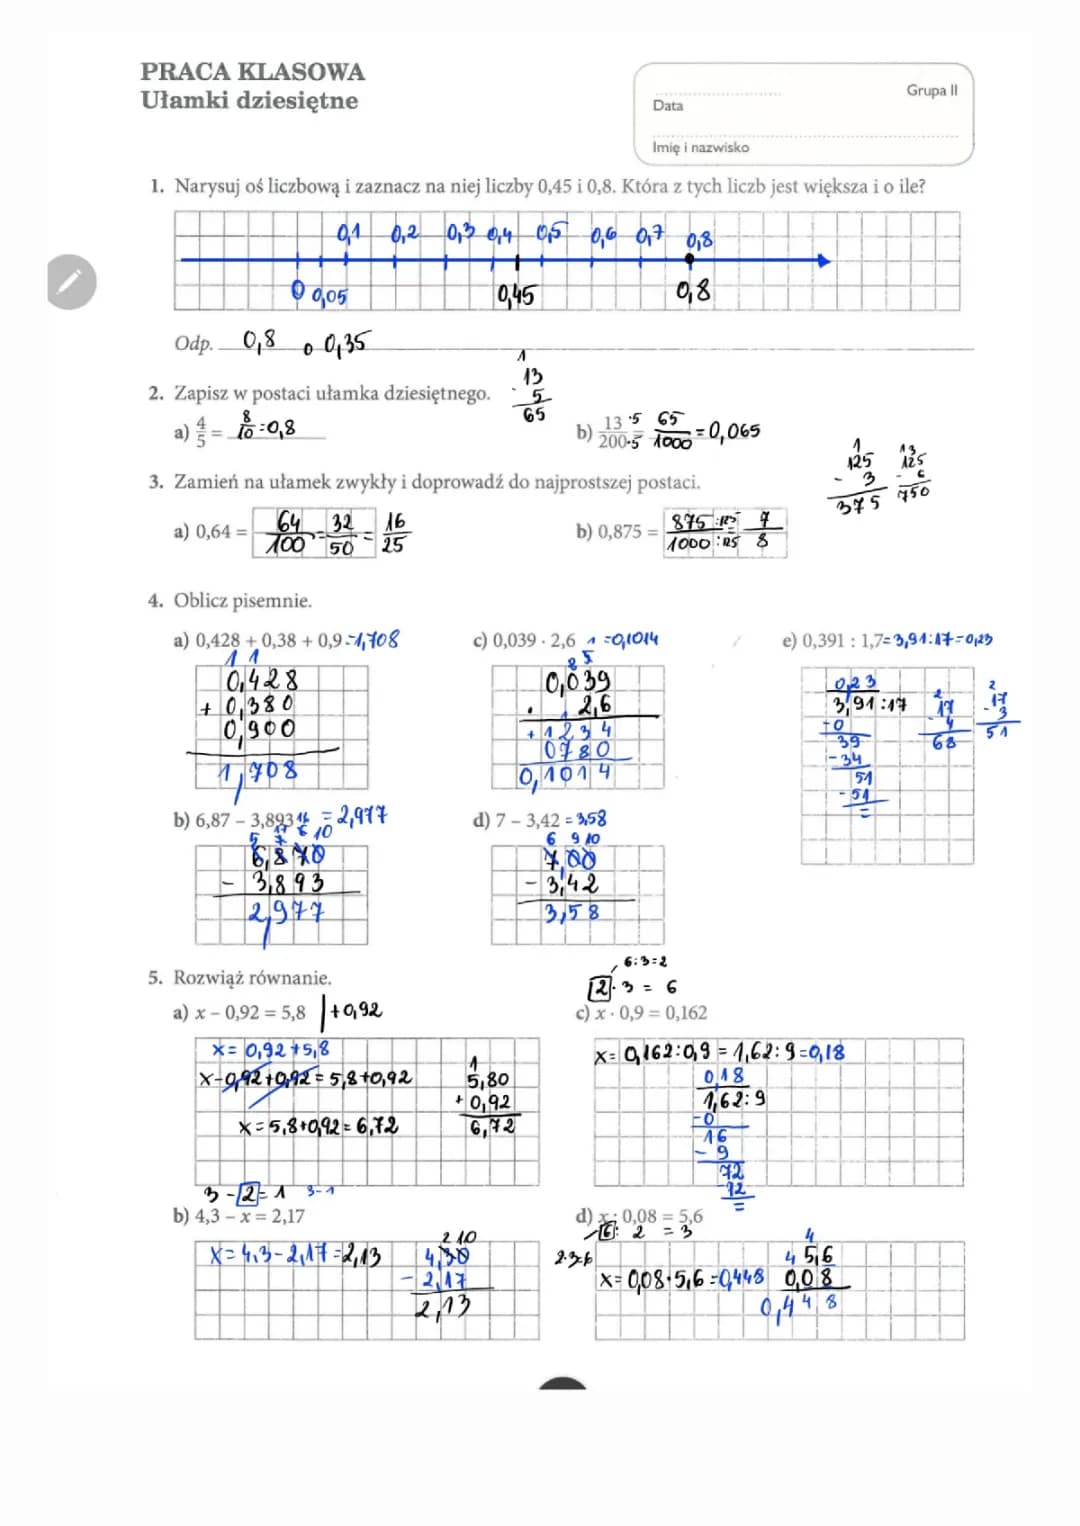 PRACA KLASOWA
Ułamki dziesiętne
Grupa II
Data
Imię i nazwisko
1. Narysuj oś liczbową i zaznacz na niej liczby 0,45 i 0,8. Która z tych liczb jest większa i o ile?
0,1 0,2 0,3 0,4 0,5 0,6 0,7 0,8
0 0,05 0,45 0,8
Odp. 0,8 o 0,35
2. Zapisz w postaci ułamka dziesiętnego.
1
13
· 5
65
a) 4/5 = 8/10 = 0,8
b) 13·5/200·5 = 65/1000 = 0,065
3. Zamień na ułamek zwykły i doprowadź do najprostszej postaci.
1
125
- 3
375
13
125
- 6
750
a) 0,64 = 64/100 = 32/50 = 16/25
b) 0,875 = 875:125/1000:125 = 7/8
4. Oblicz pisemnie.
a) 0,428 + 0,38 + 0,9 = 1,708
1 1
0,428
+ 0,380
0,900
1,708
c) 0,039 · 2,6 = 0,1014
0,039
· 2,6
+ 1234
0780
0,1014
e) 0,391 : 1,7 = 3,91:17 = 0,23
0,23
3,91 :17
-0
39
-34
51
-51
=
2
17
- 4
68
2
17
- 3
51
b) 6,87 – 3,893 = 2,977
5 17 16 10
6,870
- 3,893
2,977
d) 7 – 3,42 = 3,58
6 9 10
7,00
- 3,42
3,58
5. Rozwiąż równanie.
a) x – 0,92 = 5,8 |+0,92
x = 0,92+5,8
x-0,92+0,92 = 5,8+0,92
x = 5,8+0,92 = 6,72
1
5,80
+ 0,92
6,72
6:3=2
2 · 3 = 6
c) x · 0,9 = 0,162
x = 0,162:0,9 = 1,62:9 = 0,18
0,18
1,62:9
-0
16
- 9
72
72
=
3 - 2 = 1 3-1
b) 4,3 – x = 2,17
x = 4,3-2,17 = 2,13
2 10
4,30
- 2,17
2,13
d) x : 0,08 = 5,6
6 : 2 = 3
2·3=6
x = 0,08·5,6 = 0,448
4
4 5,6
0,08
0,448